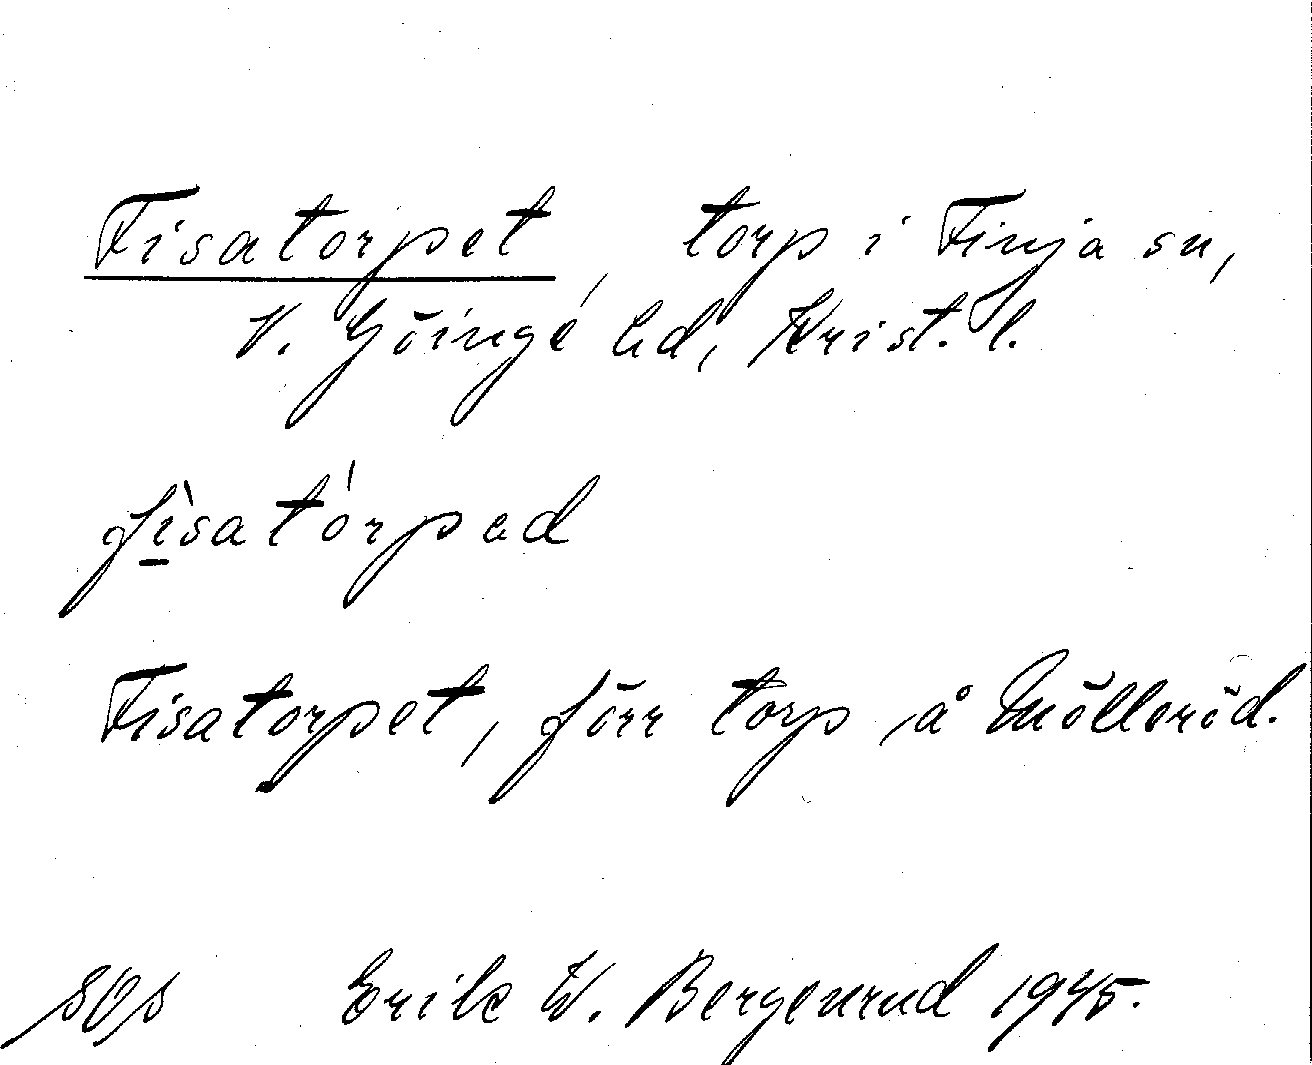 Fisatorpet, torp i Finja sn,
V. Göinge hd, Krist. l.
fìsatórped
Fisatorpet, förr torp å Mölleröd.
SOS Erik W. Bergenrud 1945.